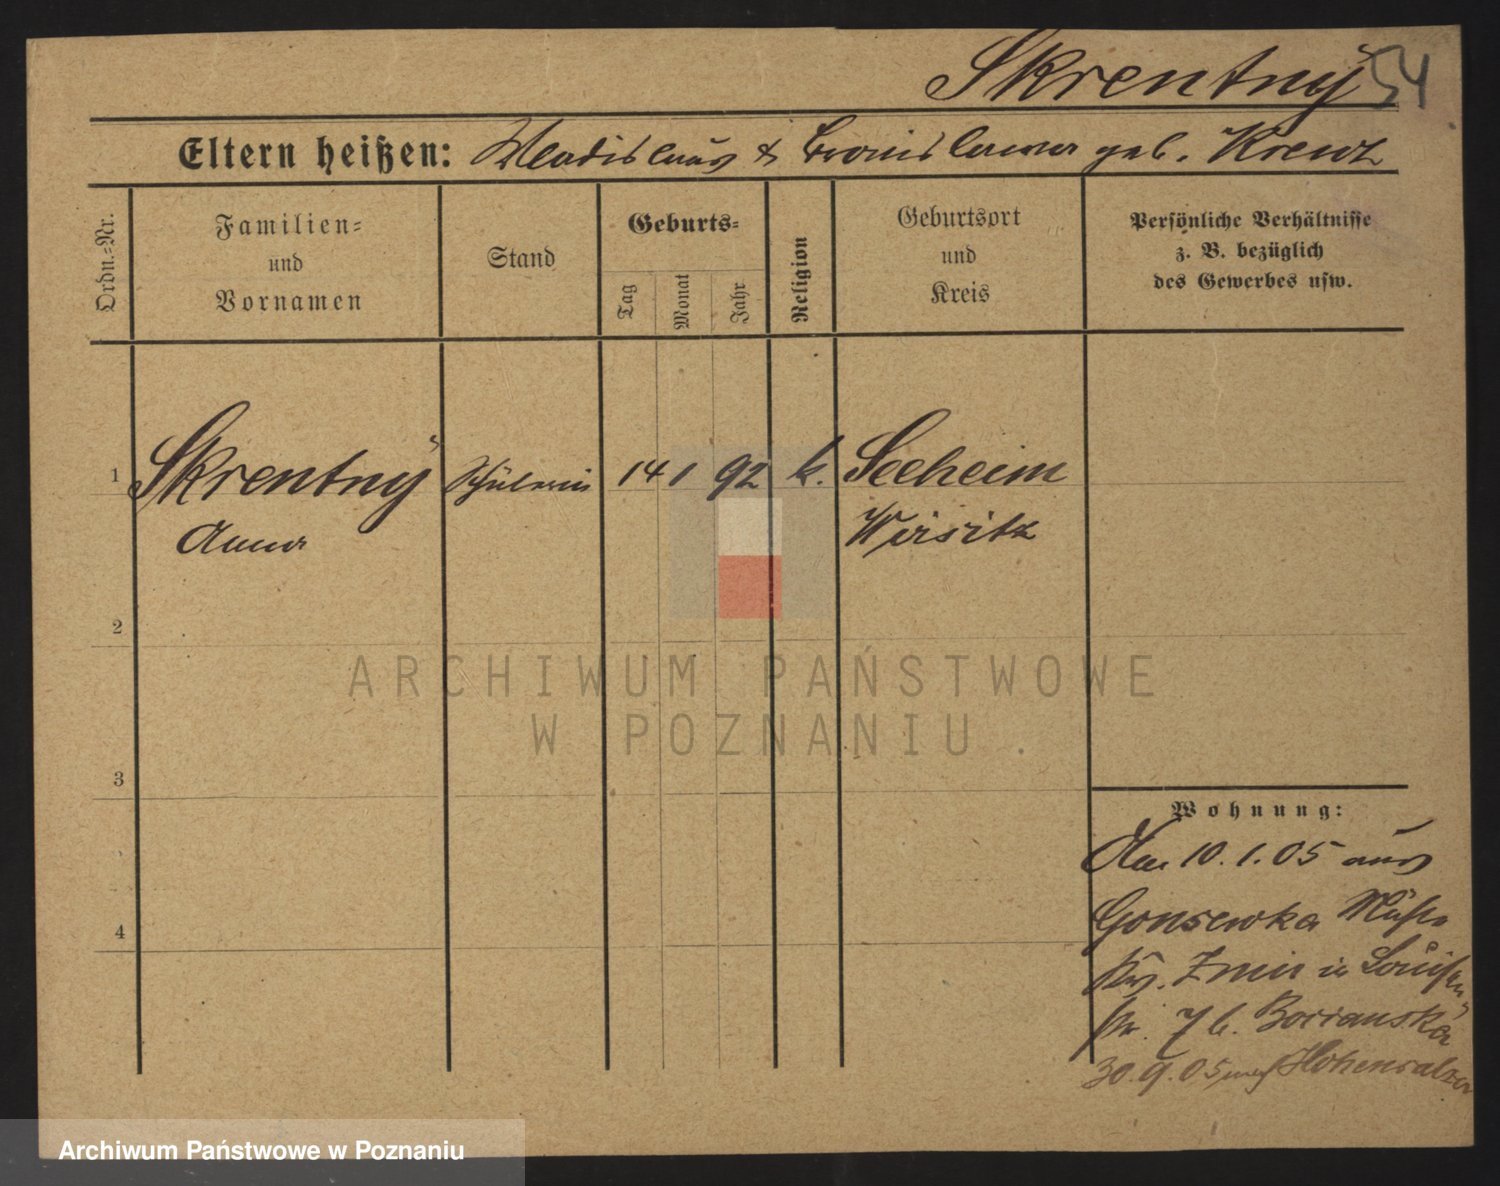 Skrentný 54
Eltern heißen: Wladislaus & Bronislawa geb. Krenz
Ordn.-Nr.
Familien-
und
Vornamen
Stand
Geburts-
Tag
Monat
Jahr
Religion
Geburtsort
und
Kreis
Persönliche Verhältnisse
z. B. bezüglich
des Gewerbes usw.
1 Skrentný Schülerin 14 1 92 k. Seeheim
Anna Wirsitz
2
3
4
ARCHIWUM PAŃSTWOWE
W POZNANIU .
Wohnung:
Am 10.1.05 aus
Gonsewka Mühle
Krs. Znin in Louisen
str. 7 b. Borranska
30.9.05 nach Hohensalza
Archiwum Państwowe w Poznaniu